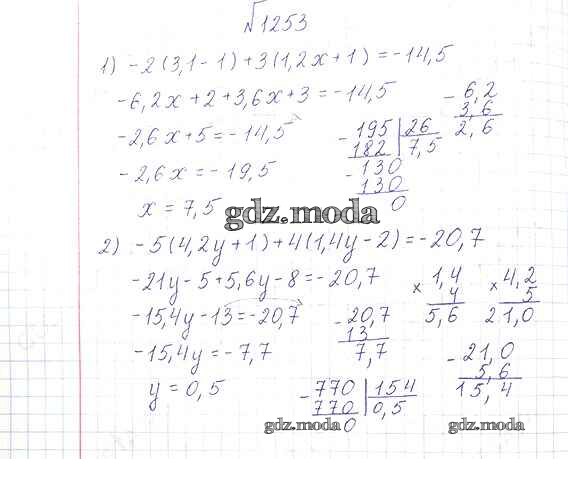 №1253
1) -2(3,1-1)+3(1,2x+1)=-14,5
-6,2x+2+3,6x+3=-14,5
-2,6x+5=-14,5
-2,6x=-19,5
x=7,5
- 6,2
3,6
2,6
- 195 | 26
182 | 7,5
- 130
130
0
gdz.moda
2) -5(4,2y+1)+4(1,4y-2)=-20,7
-21y-5+5,6y-8=-20,7
-15,4y-13=-20,7
-15,4y=-7,7
y=0,5
× 1,4
4
5,6
× 4,2
5
21,0
- 20,7
13
7,7
- 21,0
5,6
15,4
- 770 | 154
770 | 0,5
0
gdz.moda
gdz.moda